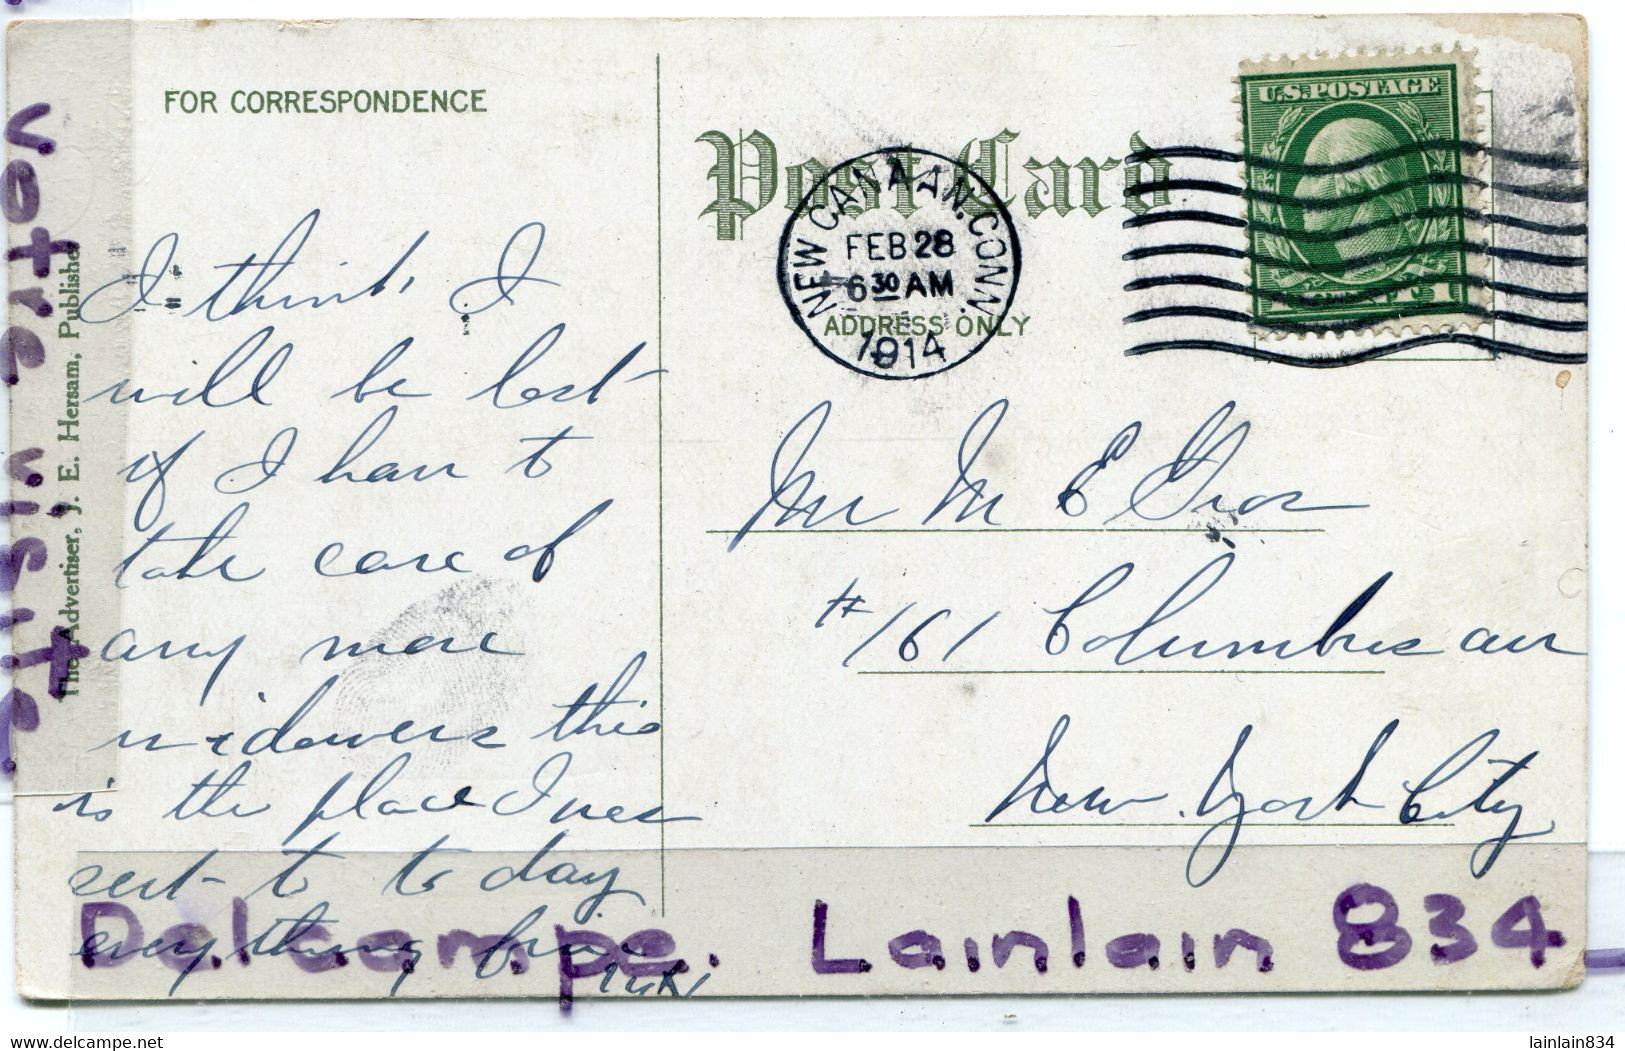 FOR CORRESPONDENCE
Post Card
U.S. POSTAGE
NEW CANAAN. CONN.
FEB 28
6 30 AM
1914
ADDRESS ONLY
The Advertiser, J. E. Hersam, Publisher
votre visite
I think I
will be lost
if I have to
take care of
any more
widowers this
is the place I was
sent to to day
everything fine
Mr M E
#161 Columbus ave
New York City
Delcampe. Lainlain 834
delcampe.net
lainlain834